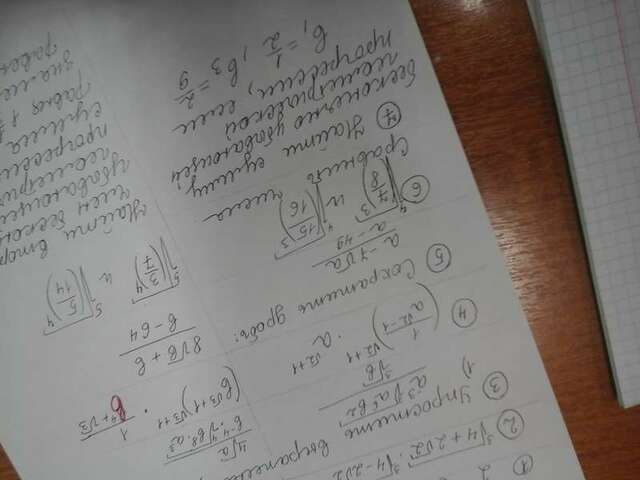 ① 2
② ∛(4 + 2√2) · ∛(4 - 2√2
③ Упростить
1) a⁻³ ∛(a⁶ b²) / ∛b
∜a / (b⁻⁴ · ∜(b⁸ · a³))
④ (1 / a^(√2-1))^(√2+1) · a^(√2+1)
(b^(√3+1))^(√3+1) · 1 / b^(4+√3)
⑤ Сократить дробь:
(a - 7√a) / (a - 49)
(8√b + b) / (b - 64)
⑥ ∜((7/8)³) и ∜((15/16)³)
⁵√((3/7)⁴) и ⁵√((5/14)⁴)
Сравнить числа
⑦ Найти сумму
бесконечно убывающей
геометрической
прогрессии, если
b₁ = 1/2, b₃ = 2/9
Найти
член
убывающей
геометри
прогресси
сумма
равна
знаме
равен